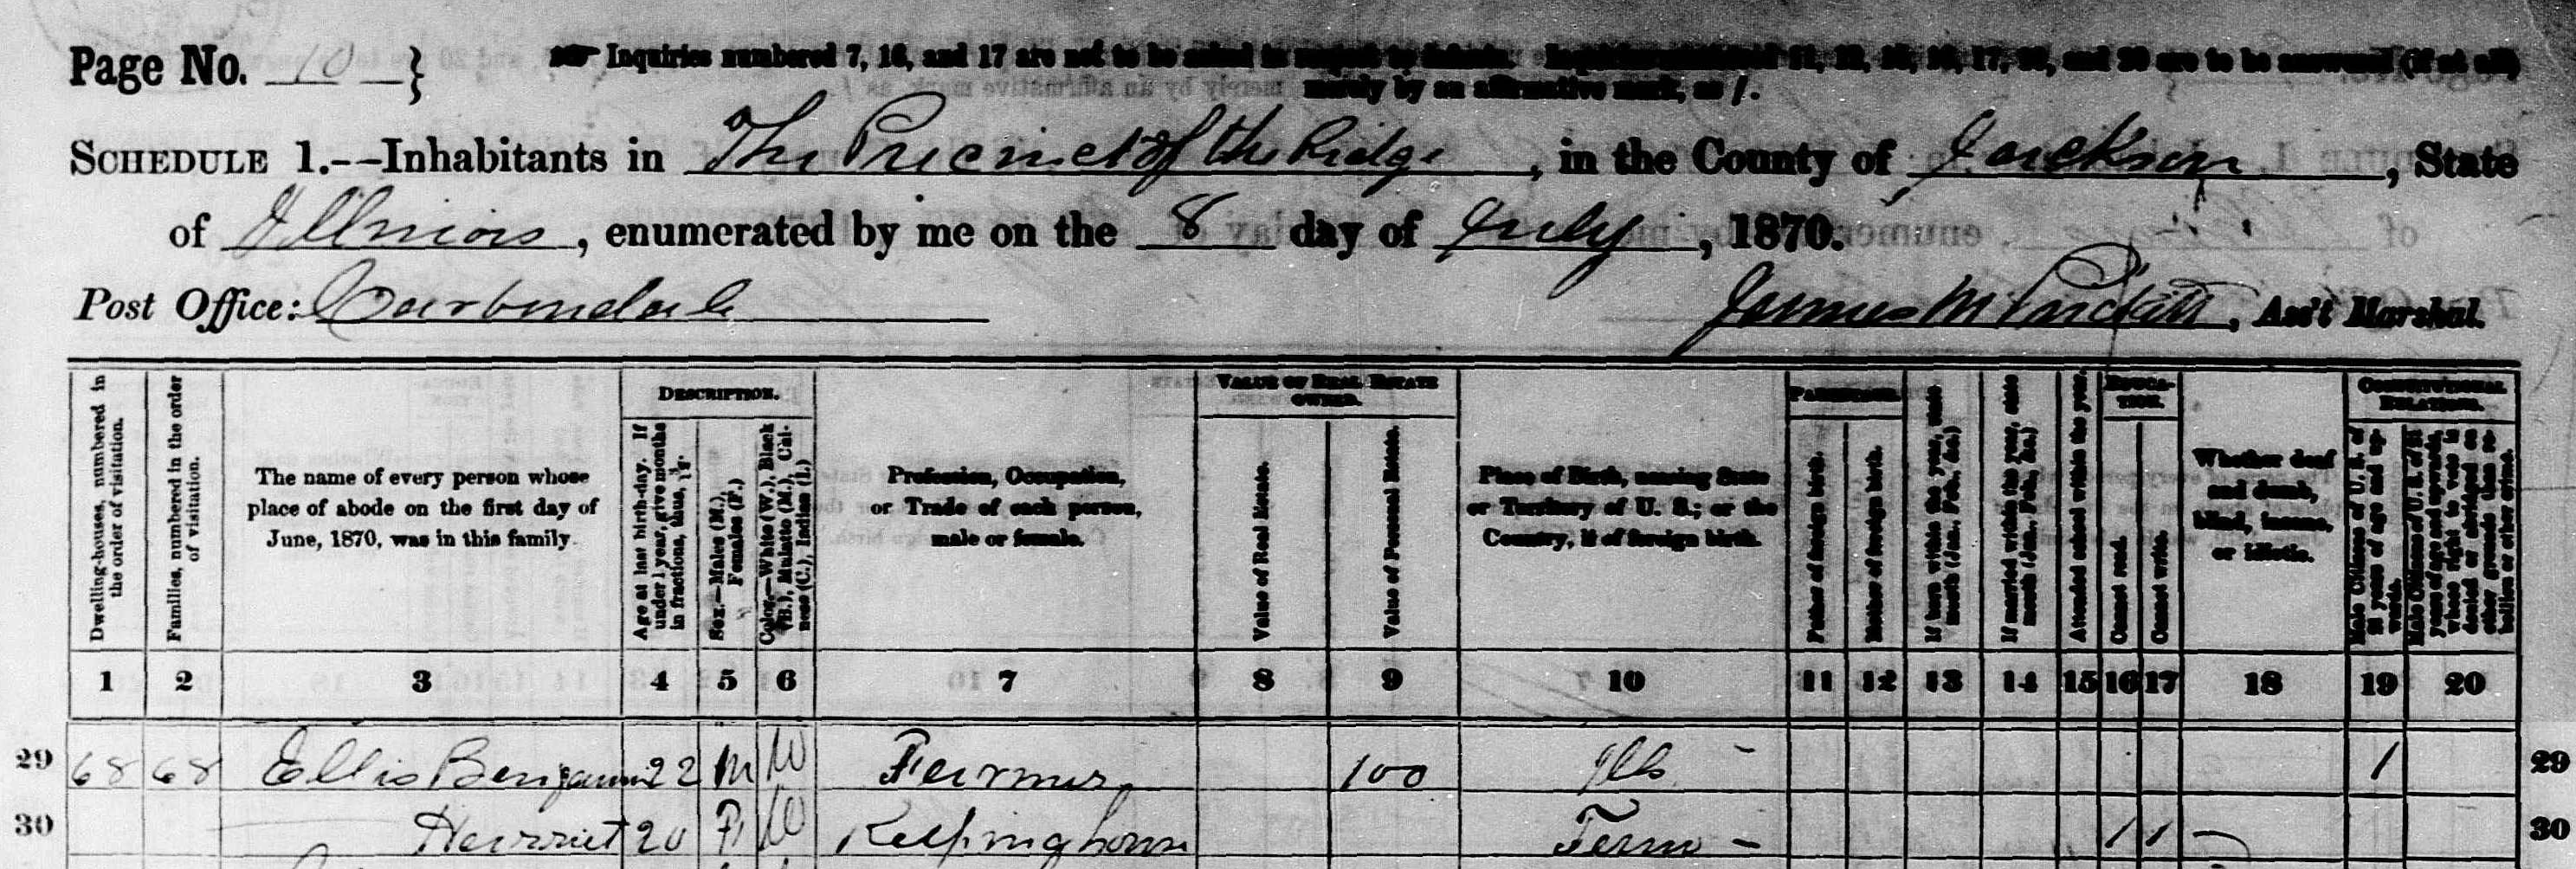 Page No. 10 }
Inquiries numbered 7, 16, and 17 are not to be asked in respect to infants. Inquiries numbered 11, 12, 15, 16, 17, 19, and 20 are to be answered (if at all)
merely by an affirmative mark, as /.
SCHEDULE 1.--Inhabitants in The Precinct of the Ridge, in the County of Jackson, State
of Illinois, enumerated by me on the 8 day of July, 1870.
Post Office: Carbondale
James M , Ass't Marshal.
Dwelling-houses, numbered in the order of visitation.
Families, numbered in the order of visitation.
The name of every person whose
place of abode on the first day of
June, 1870, was in this family.
DESCRIPTION.
Age at last birth-day. If under 1 year, give months in fractions, thus, 3/12.
Sex.—Males (M.), Females (F.)
Color.—White (W.), Black (B.), Mulatto (M.), Chinese (C.), Indian (I.)
Profession, Occupation,
or Trade of each person,
male or female.
VALUE OF REAL ESTATE
OWNED.
Value of Real Estate.
Value of Personal Estate.
Place of Birth, naming State
or Territory of U. S.; or the
Country, if of foreign birth.
PARENTAGE.
Father of foreign birth.
Mother of foreign birth.
If born within the year, state month (Jan., Feb., &c.)
If married within the year, state month (Jan., Feb., &c.)
Attended school within the year.
EDUCA-
TION.
Cannot read.
Cannot write.
Whether deaf
and dumb,
blind, insane,
or idiotic.
CONSTITUTIONAL
RELATIONS.
Male Citizens of U. S. of 21 years of age and upwards.
Male Citizens of U. S. of 21 years of age and upwards, whose right to vote is denied or abridged on other grounds than rebellion or other crime.
1 2 3 4 5 6 7 8 9 10 11 12 13 14 15 16 17 18 19 20
29 68 68 Ellis Benjamin 22 M W Farmer 100 Ills - 1 29
30 Harriet 20 F W Keeping house Tenn - 1 1 30